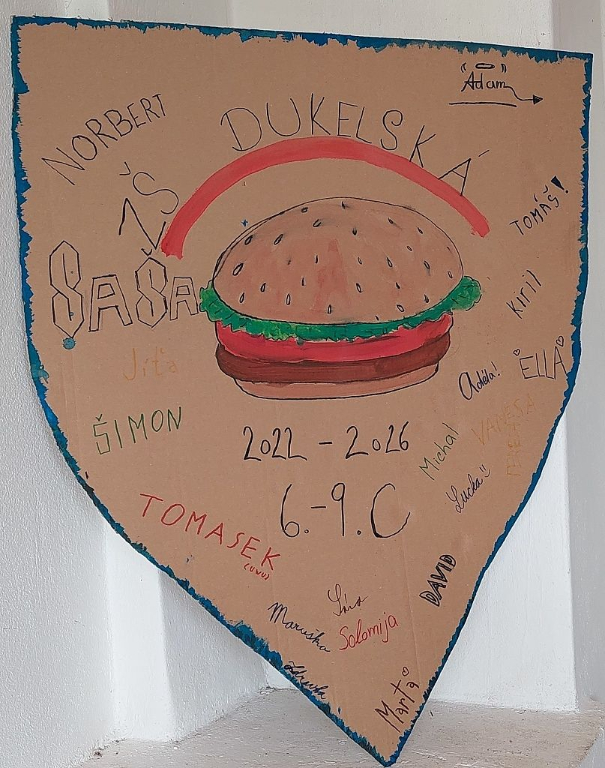 Adam
NORBERT
ZŠ DUKELSKÁ
TOMÁŠ!
SAŠA
Kiril
Jíťa
ELLA
Adéla!
ŠIMON
2022 - 2026
VANESA
Michal
Lucka
6.-9.C
TOMASEK
(UWU)
DAVID
Sára
Maruška
Solomija
Marta